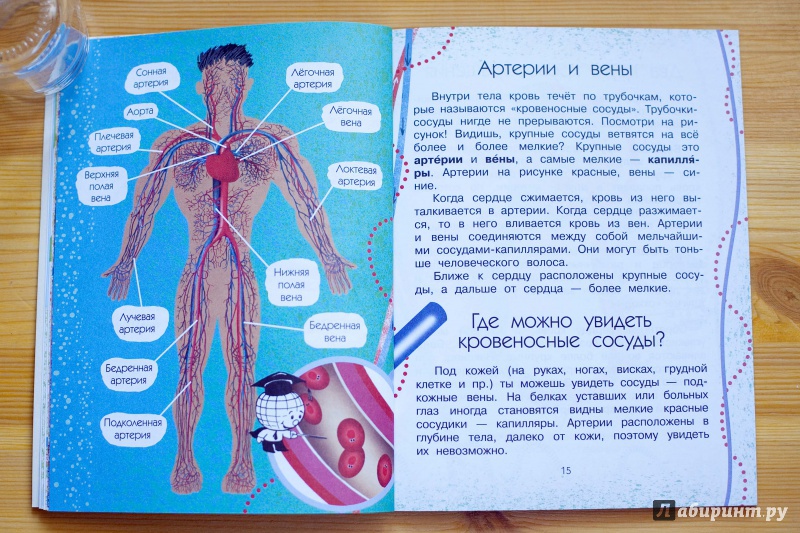 Сонная
артерия
Лёгочная
артерия
Аорта
Лёгочная
вена
Плечевая
артерия
Верхняя
полая
вена
Локтевая
артерия
Нижняя
полая
вена
Лучевая
артерия
Бедренная
вена
Бедренная
артерия
Подколенная
артерия
Артерии и вены
Внутри тела кровь течёт по трубочкам, кото-
рые называются «кровеносные сосуды». Трубочки-
сосуды нигде не прерываются. Посмотри на ри-
сунок! Видишь, крупные сосуды ветвятся на всё
более и более мелкие? Крупные сосуды это
арте́рии и ве́ны, а самые мелкие — капилля́-
ры. Артерии на рисунке красные, вены — си-
ние.
Когда сердце сжимается, кровь из него вы-
талкивается в артерии. Когда сердце разжимает-
ся, то в него вливается кровь из вен. Артерии
и вены соединяются между собой мельчайши-
ми сосудами-капиллярами. Они могут быть тонь-
ше человеческого волоса.
Ближе к сердцу расположены крупные сосу-
ды, а дальше от сердца — более мелкие.
Где можно увидеть
кровеносные сосуды?
Под кожей (на руках, ногах, висках, грудной
клетке и пр.) ты можешь увидеть сосуды — под-
кожные вены. На белках уставших или больных
глаз иногда становятся видны мелкие красные
сосудики — капилляры. Артерии расположены в
глубине тела, далеко от кожи, поэтому увидеть
их невозможно.
15
Лабиринт.ру